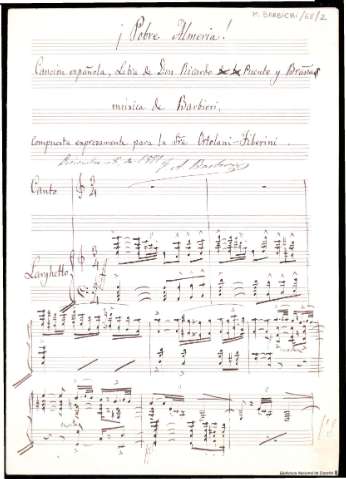 M. BARBIERI/68/2
¡Pobre Almeria!
Canción española, Letra de Don Ricardo Puente y Brañas
música de Barbieri,
compuesta expresamente para la Sra Ortolani-Tiberini.
de 18 F. A. Barbieri
Canto
Larghetto
Biblioteca Nacional de España